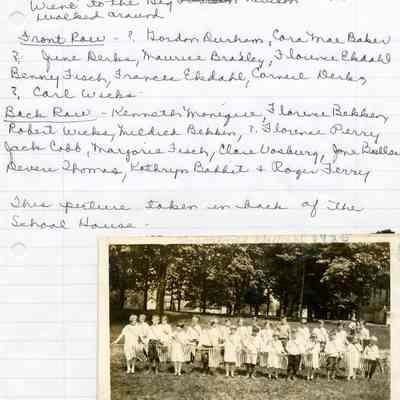 Went to the Big
walked around
Front Row - ?. Gordon Durham, Cora Mae Baker
?. June Derks, Maurice Brakley, Florence Ekdahl
Benny Fisch, Frances Ekdahl, Corneil Derks
?, Carl Weeks
Back Row - Kenneth Monique, Florine Bekken,
Robert Weeks, Mildred Bekken, ?. Florence Perry
Jack Cobb, Marjorie Fisch, Clare Vosburg, June
Devere Thomas, Kathryn Babbit & Roger Terry
This picture taken in back of the
School House -